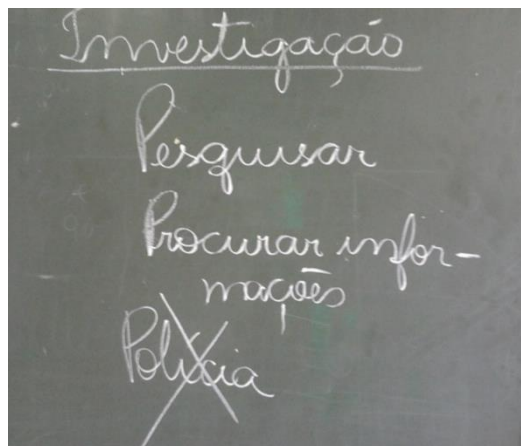 Investigação
Pesquisar
Procurar infor-
mações
Polícia